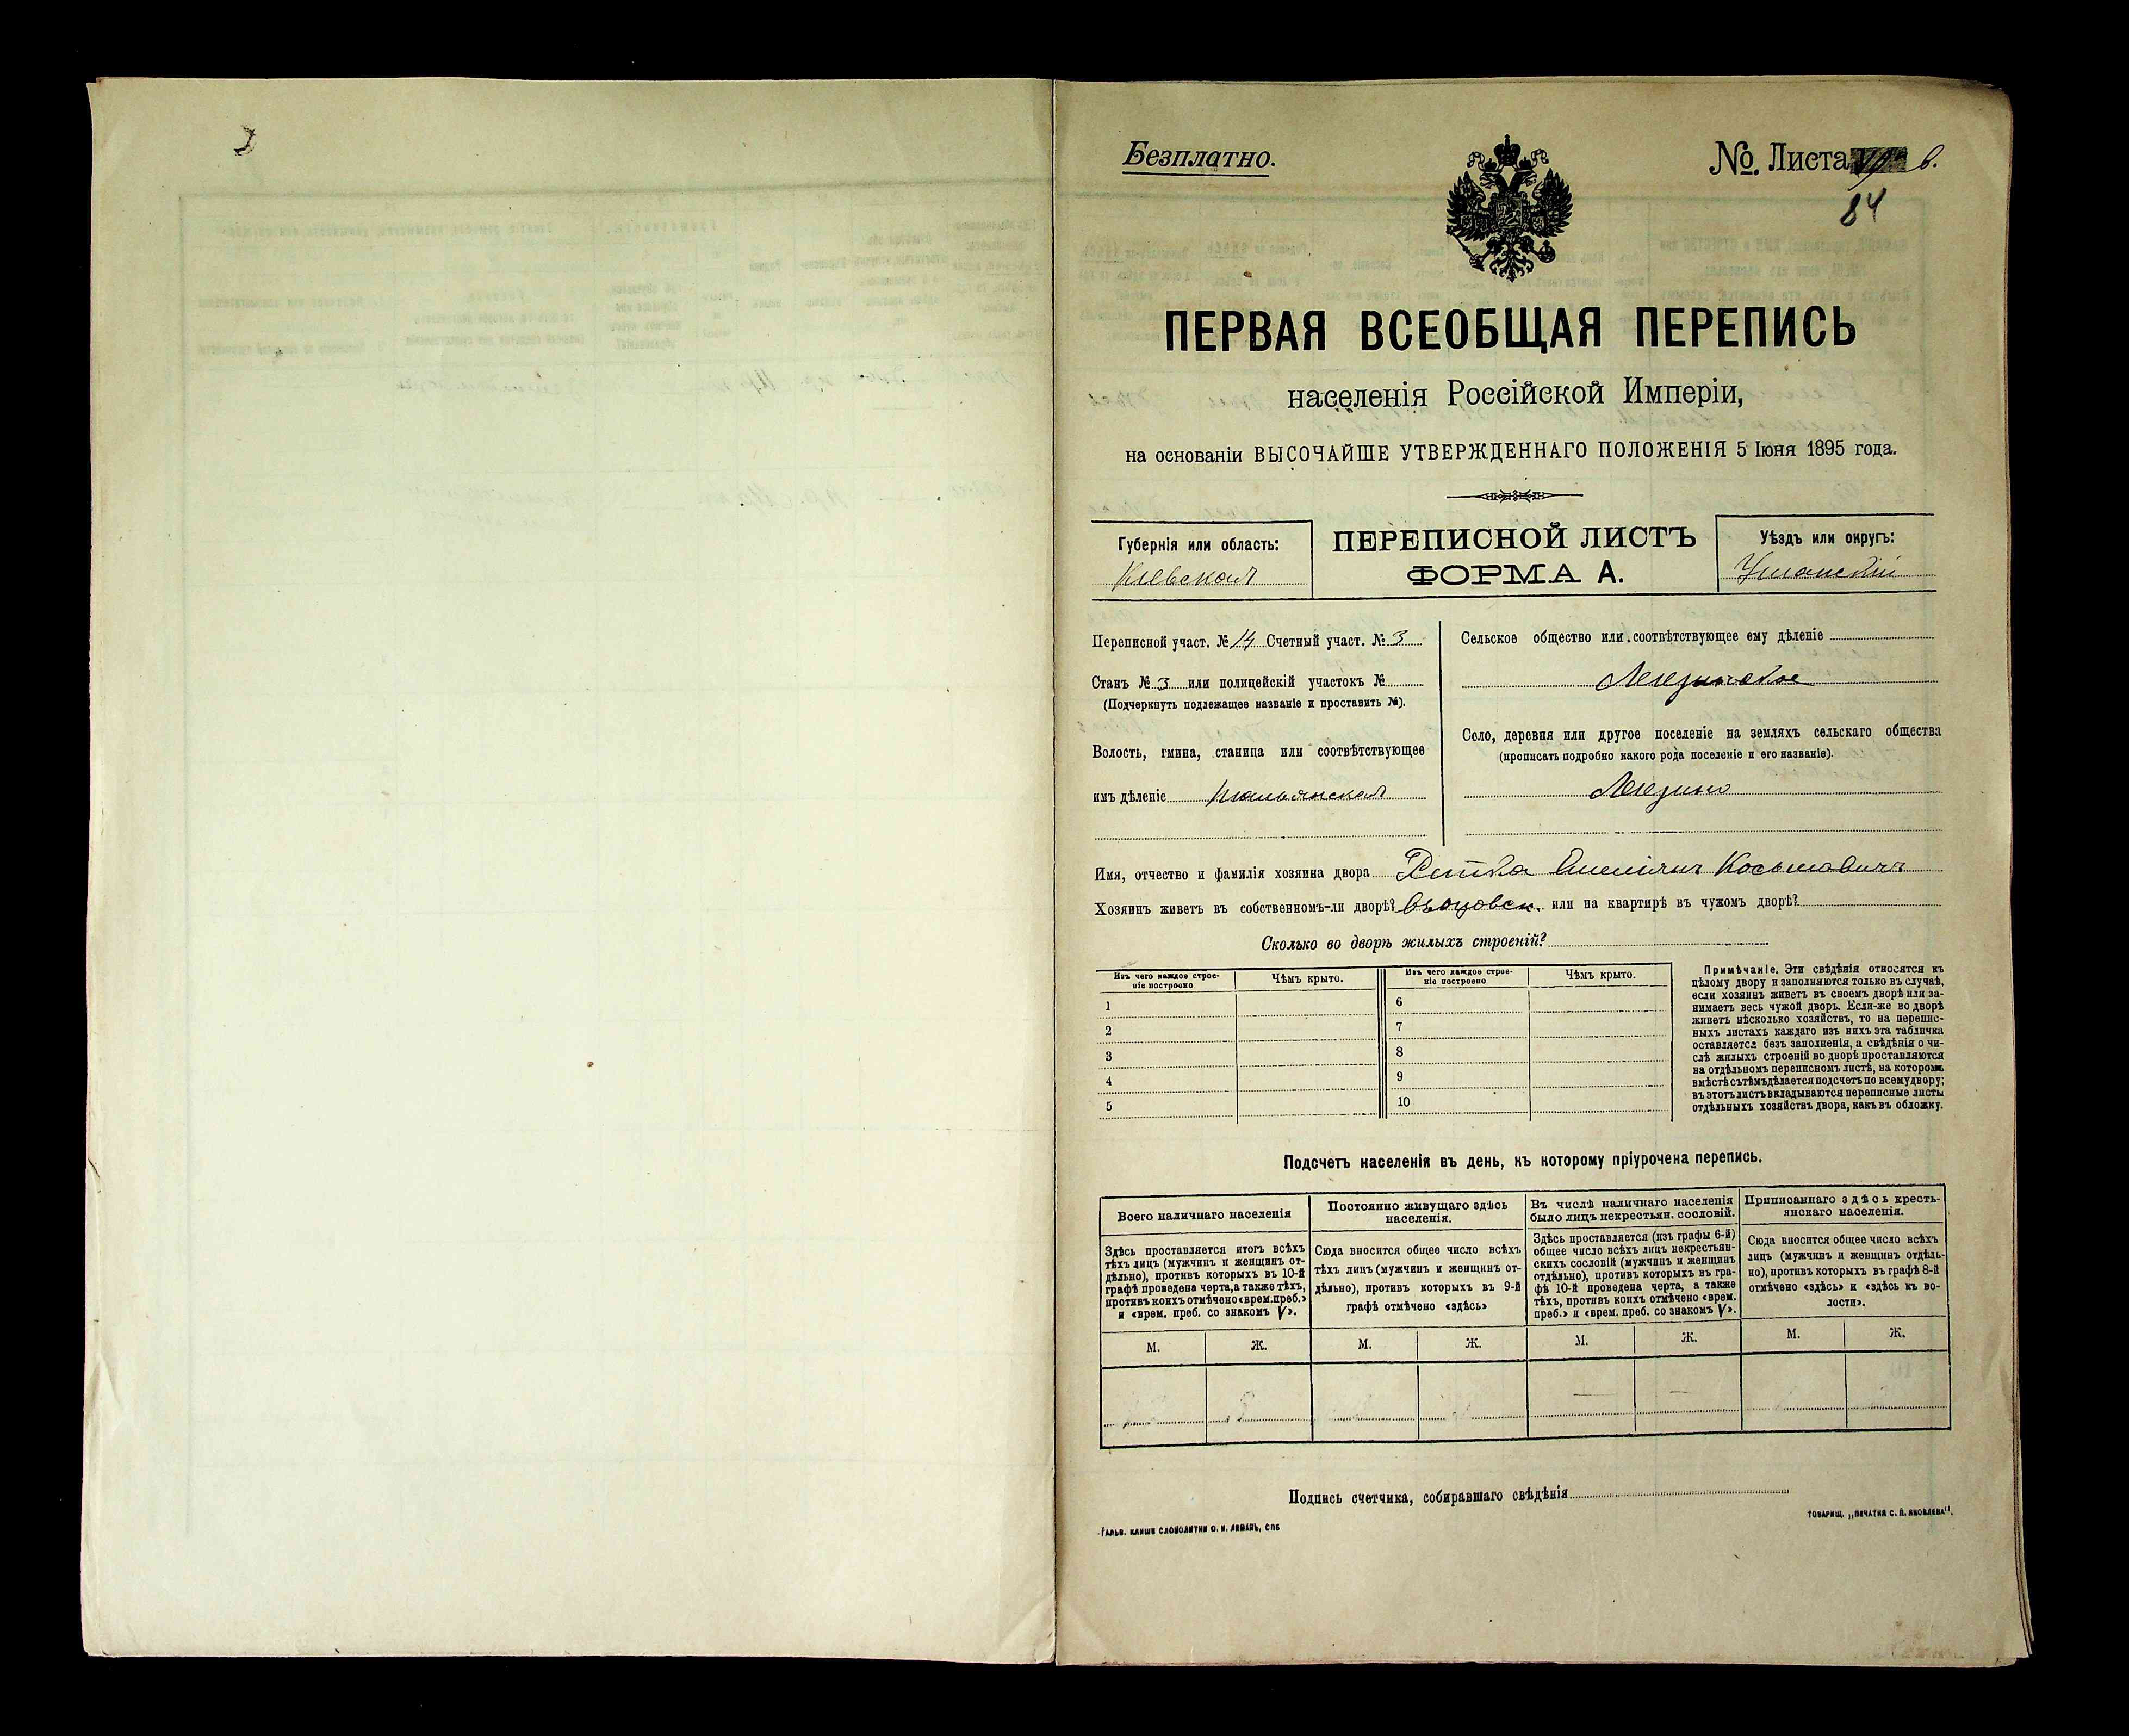 Безплатно.
№. Листа в.
84
ПЕРВАЯ ВСЕОБЩАЯ ПЕРЕПИСЬ
населенія Россійской Имперіи,
на основаніи ВЫСОЧАЙШЕ УТВЕРЖДЕННАГО ПОЛОЖЕНІЯ 5 Іюня 1895 года.
Губернія или область:
Кіевская
ПЕРЕПИСНОЙ ЛИСТЪ
ФОРМА А.
Уѣздъ или округъ:
Уманскій
Переписной участ. № 14 Счетный участ. № 3
Станъ № 3 или полицейскій участокъ №
(Подчеркнуть подлежащее названіе и проставить №).
Волость, гмина, станица или соотвѣтствующее
имъ дѣленіе
Сельское общество или соотвѣтствующее ему дѣленіе
Легезинское
Село, деревня или другое поселеніе на земляхъ сельскаго общества
(прописать подробно какого рода поселеніе и его названіе).
Легезино
Имя, отчество и фамилія хозяина двора Емеліянъ Косьмовичъ
Хозяинъ живетъ въ собственномъ-ли дворѣ? или на квартирѣ въ чужомъ дворѣ?
Сколько во дворѣ жилыхъ строеній?
Изъ чего каждое строе-
ніе построено
Чѣмъ крыто.
Изъ чего каждое строе-
ніе построено
Чѣмъ крыто.
1 6
2 7
3 8
4 9
5 10
Примѣчаніе. Эти свѣдѣнія относятся къ
цѣлому двору и заполняются только въ случаѣ,
если хозяинъ живетъ въ своемъ дворѣ или за-
нимаетъ весь чужой дворъ. Если-же во дворѣ
живетъ нѣсколько хозяйствъ, то на перепис-
ныхъ листахъ каждаго изъ нихъ эта табличка
оставляется безъ заполненія, а свѣдѣнія о чи-
слѣ жилыхъ строеній во дворѣ проставляются
на отдѣльномъ переписномъ листѣ, на которомъ
вмѣстѣ съ тѣмъ дѣлается подсчетъ по всему двору;
въ этотъ листъ вкладываются переписные листы
отдѣльныхъ хозяйствъ двора, какъ въ обложку.
Подсчетъ населенія въ день, къ которому пріурочена перепись.
Всего наличнаго населенія
Здѣсь проставляется итогъ всѣхъ
тѣхъ лицъ (мужчинъ и женщинъ от-
дѣльно), противъ которыхъ въ 10-й
графѣ проведена черта, а также тѣхъ,
противъ коихъ отмѣчено «врем. преб.»
и «врем. преб. со знакомъ V».
Постоянно живущаго здѣсь
населенія.
Сюда вносится общее число всѣхъ
тѣхъ лицъ (мужчинъ и женщинъ от-
дѣльно), противъ которыхъ въ 9-й
графѣ отмѣчено «здѣсь»
Въ числѣ наличнаго населенія
было лицъ некрестьян. сословій.
Здѣсь проставляется (изъ графы 6-й)
общее число всѣхъ лицъ некрестьян-
скихъ сословій (мужчинъ и женщинъ
отдѣльно), противъ которыхъ въ гра-
фѣ 10-й проведена черта, а также
тѣхъ, противъ коихъ отмѣчено «врем.
преб.» и «врем. преб. со знакомъ V».
Приписаннаго здѣсь кресть-
янскаго населенія.
Сюда вносится общее число всѣхъ
лицъ (мужчинъ и женщинъ отдѣль-
но), противъ которыхъ въ графѣ 8-й
отмѣчено «здѣсь» и «здѣсь въ во-
лости».
М. Ж. М. Ж. М. Ж. М. Ж.
— —
Подпись счетчика, собиравшаго свѣдѣнія
ГАЛЬВ. КЛИШЕ СЛОВОЛИТНИ О. И. ЛЕМАНЪ, СПБ
ТОВАРИЩ. „ПЕЧАТНЯ С. П. ЯКОВЛЕВА".